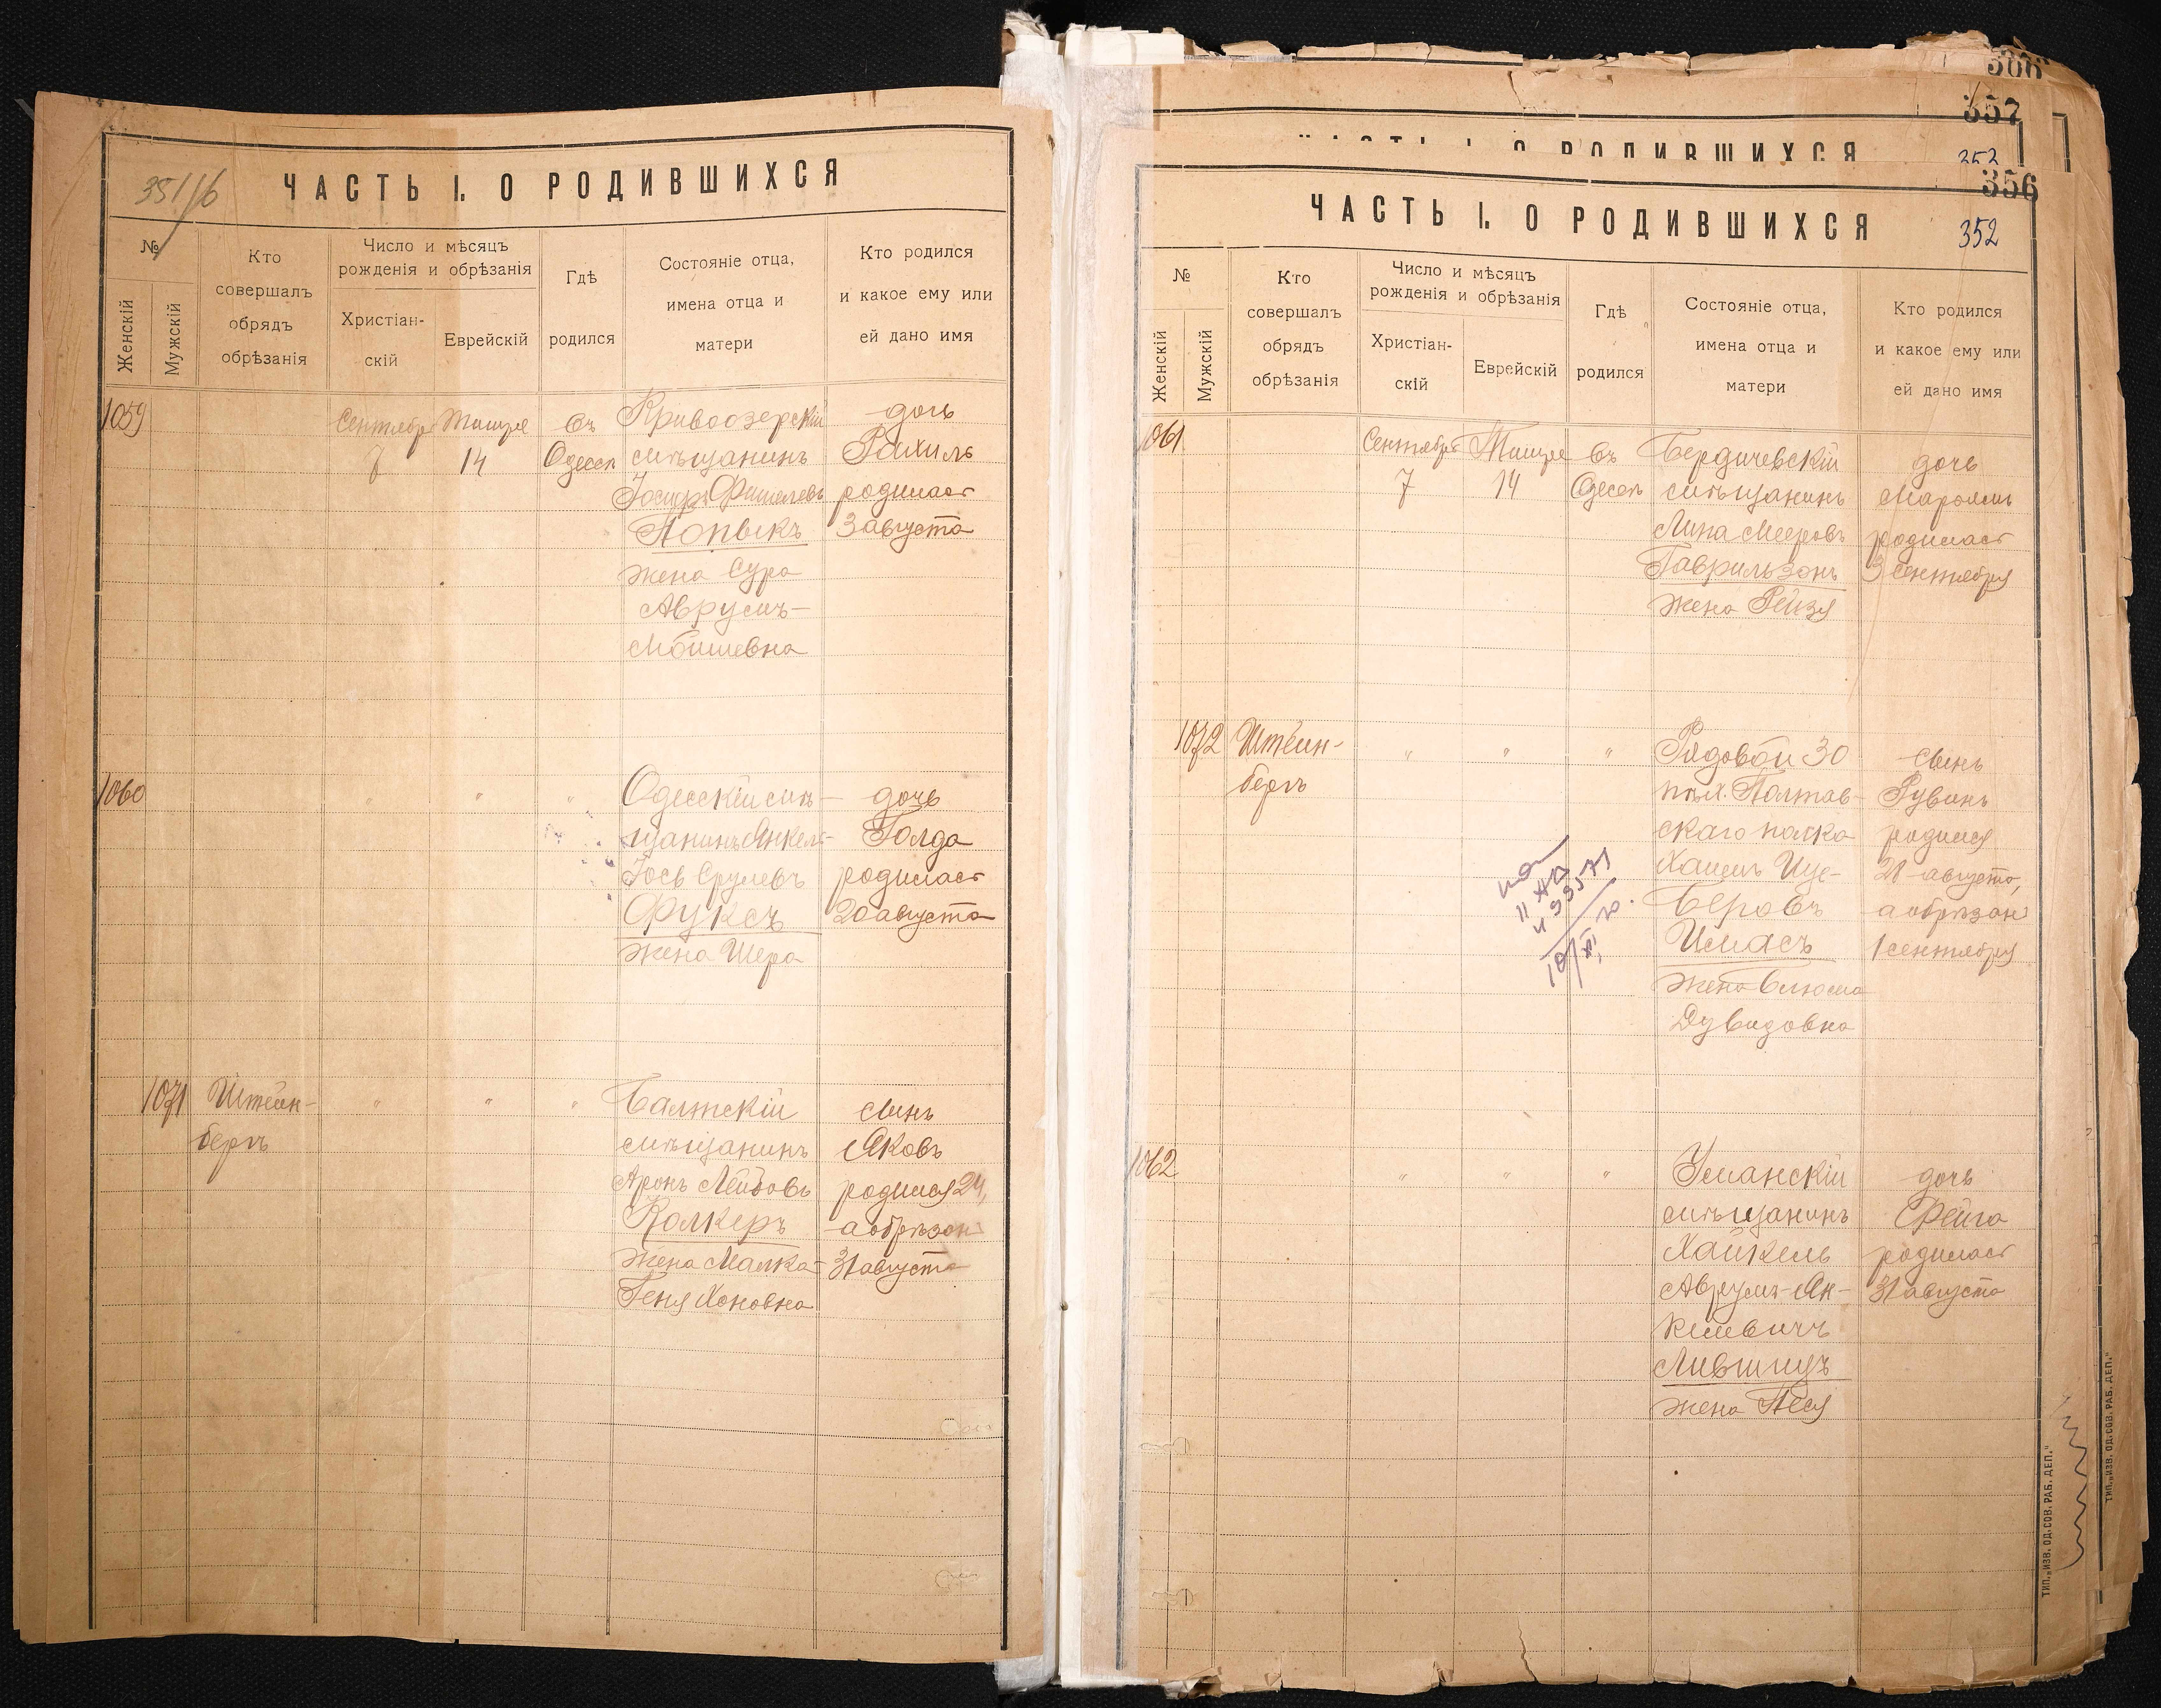 351/б
ЧАСТЬ I. О РОДИВШИХСЯ
№
Женскій
Мужскій
Кто
совершалъ
обрядъ
обрѣзанія
Число и мѣсяцъ
рожденія и обрѣзанія
Христіан-
скій
Еврейскій
Гдѣ
родился
Состояніе отца,
имена отца и
матери
Кто родился
и какое ему или
ей дано имя
1059
Сентябр
7
Тишре
14
въ
Одессѣ
Кривоозерскій
мѣщанинъ
Іосифъ Фишелевъ
Попыкъ
жена Сура
Аврумъ-
Мойшевна
дочь
Рахиль
родилась
3 августа
1060
"
"
"
Одесскій мѣ-
щанинъ Янкель-
Іось Срулевъ
Фуксъ
жена Шера
дочь
Голда
родилась
20 августа
1071
Штейн-
бергъ
"
"
"
Балтскій
мѣщанинъ
Аронъ Лейбовъ
Колкеръ
жена Малка-
Геня Хоновна
сынъ
Яковъ
родился 24,
а обрѣзан
31 августа
306
357
ЧАСТЬ I. О РОДИВШИХСЯ
352
356
ЧАСТЬ I. О РОДИВШИХСЯ
352
№
Женскій
Мужскій
Кто
совершалъ
обрядъ
обрѣзанія
Число и мѣсяцъ
рожденія и обрѣзанія
Христіан-
скій
Еврейскій
Гдѣ
родился
Состояніе отца,
имена отца и
матери
Кто родился
и какое ему или
ей дано имя
1061
Сентября
7
Тишре
14
въ
Одессѣ
Бердичевскій
мѣщанинъ
Липа Мееровъ
Гаврильзонъ
жена Рейзя
дочь
Марьямъ
родилась
3 сентября
1072
Штейн-
бергъ
"
"
"
Рядовой 30
пѣх. Полтав-
скаго полка
Хаимъ Ице-
Беровъ
Исмасъ
жена Блюма
Дувидовна
сынъ
Рувинъ
родился
21 августа,
а обрѣзан
1 сентября
1062
"
"
"
Уманскій
мѣщанинъ
Хайкель
Аврумъ-Ян-
келевичъ
Лившицъ
жена Песя
дочь
Фейга
родилась
31 августа
ТИП. „ИЗВ. ОД. СОВ. РАБ. ДЕП."
ТИП. „ИЗВ. ОД. СОВ. РАБ. ДЕП."